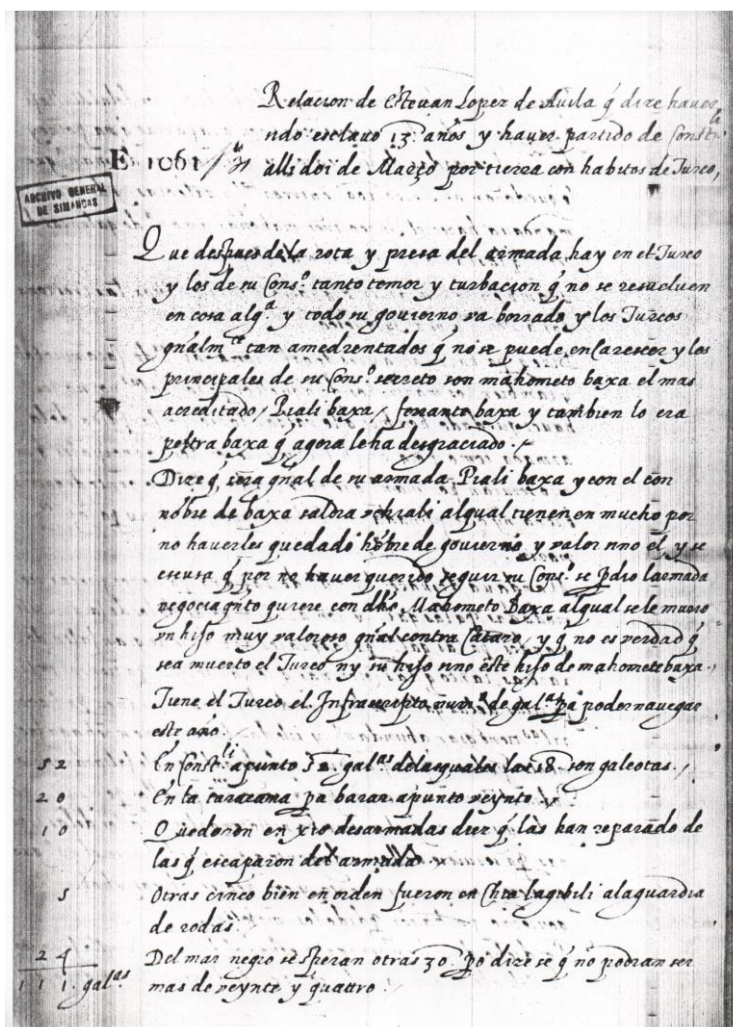 Relacion de Estevan Lopez de Avila q̃ dize haver
ndo esclavo 13 años y haver partido de Const.li
E 1061 / alli doi de Março por tierra con habitos de Turco,
ARCHIVO GENERAL
DE SIMANCAS
Que despues de la rota y presa del armada, hay en el Turco
y los de su Cons.º tanto temor y turbacion q̃ no se resuelven
en cosa alg.ª y todo su govierno va borrado y los Turcos
gñalm.te tan amedrentados q̃ no se puede encarescer y los
principales de su Cons.º secreto son mahometo baxa el mas
acreditado / Piali baxa / baxa y tambien lo era
baxa q̃ agora le ha desgraciado.
Dize q̃ sera gñal de su armada Piali baxa y con el con
nõbre de baxa saldra al qual tienen en mucho por
no haverles quedado hõbre de govierno y valor sino el, y se
escusa q̃ por no haver querido seguir su Cons.º se pdio larmada
negocia qñto quiere con dho Mahometo Baxa al qual se le murio
vn hijo muy valeroso gñal contra Cataro, y q̃ no es verdad q̃
sea muerto el Turco ny su hijo sino este hijo de mahometo baxa.
Tiene el Turco el Infraescripto num.º de gal.as pa poder navegar
este año
52 En Const.li apunto 52 gal.as delas quales las 18 son galeotas.
20 En la taraçana pa barar apunto veynte.
10 Quedaron en xio desarmadas diez q̃ las han reparado de
las q̃ escaparon del armada.
5 Otras cinco bien en orden fueron en alaguardia
de rodas.
24 Del mar negro se speran otras 30 po dize se q̃ no podran ser
111 gal.as mas de veynte y quattro.